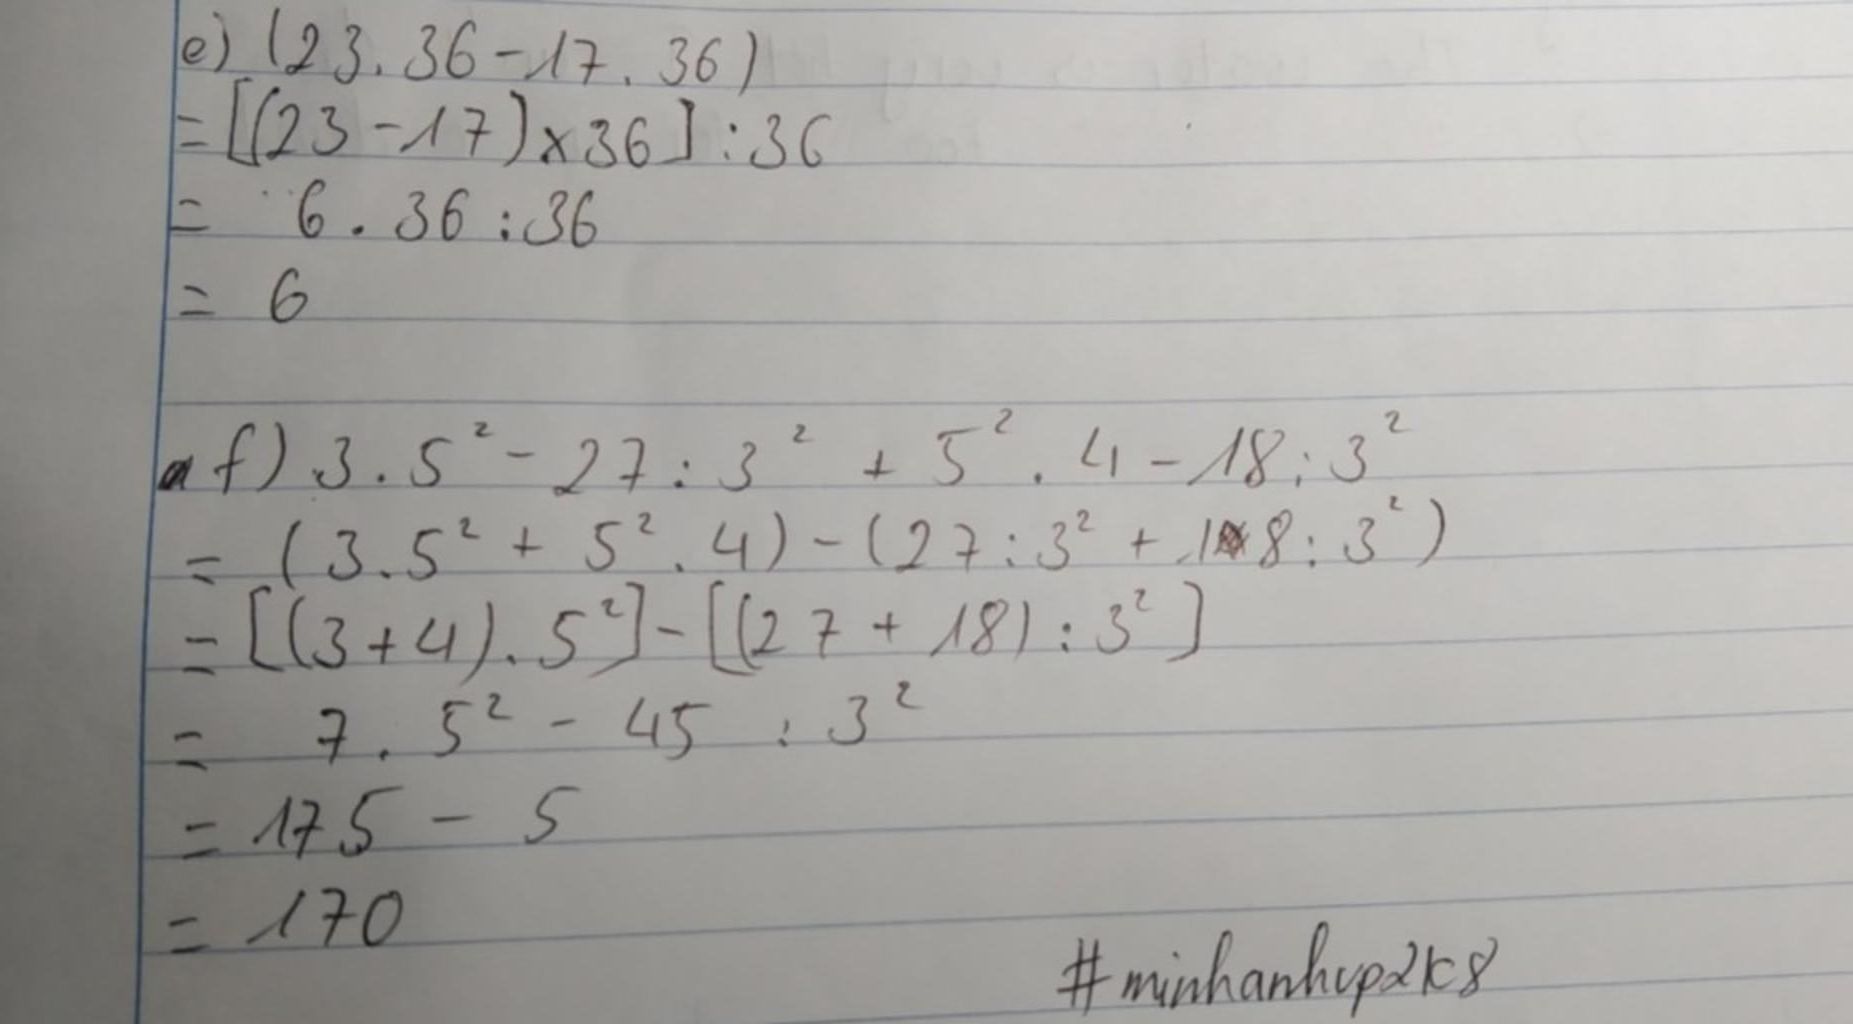 e) (23.36-17.36)
=[(23-17)x36]:36
= 6.36:36
= 6
f) 3.5²-27:3²+5².4-18:3²
= (3.5²+5².4)-(27:3²+18:3²)
= [(3+4).5²]-[(27+18):3²]
= 7.5²-45:3²
= 175-5
= 170
#minhanhvp2k8